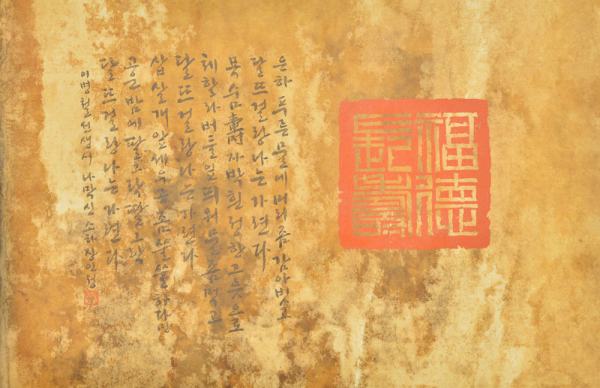 福德
은하 푸른 물에 머리 좀 감아 빗고
달 뜨걸랑 나는 가련다
목숨 壽자 박힌 정한 그릇으로
체할라 버들잎 띄워 물 좀 먹고
달 뜨걸랑 나는 가련다
삽살개 앞세우곤 좀 쓸쓸하다만
고운 밤에 딸그락 딸그락
달 뜨걸랑 나는 가련다
이병철 선생 시 나막신 소하